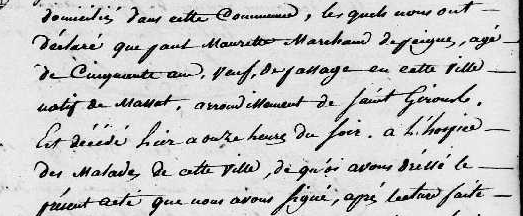 domiciliés dans cette Commune, les quels nous ont
déclaré que paul Maurette Marchand de peignes, agé
de Cinquante ans, veuf, de passage en cette ville
natif de Massat, arrondissement de saint Girons.
Est décédé hier a onze heures du soir, a L'hospice
des Malades de cette ville, de quoi avons dréssé le
présent acte que nous avons signé, aprés lecture faite